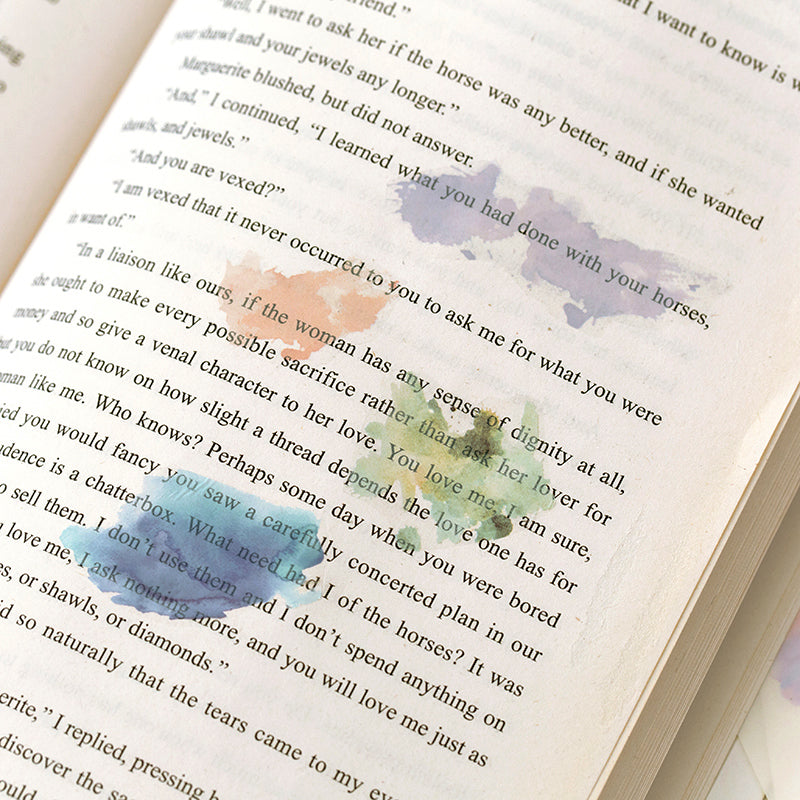 friend.”
“Well, I went to ask her if the horse was any better, and if she wanted
your shawl and your jewels any longer.”
Marguerite blushed, but did not answer.
“And,” I continued, “I learned what you had done with your horses,
shawls, and jewels.”
“And you are vexed?”
“I am vexed that it never occurred to you to ask me for what you were
in want of.”
“In a liaison like ours, if the woman has any sense of dignity at all,
she ought to make every possible sacrifice rather than ask her lover for
money and so give a venal character to her love. You love me, I am sure,
but you do not know on how slight a thread depends the love one has for
woman like me. Who knows? Perhaps some day when you were bored
you would fancy you saw a carefully concerted plan in our
is a chatterbox. What need had I of the horses? It was
sell them. I don’t use them and I don’t spend anything on
love me, I ask nothing more, and you will love me just as
or shawls, or diamonds.”
so naturally that the tears came to my
I replied, pressing
discover the
that I want to know is
ing